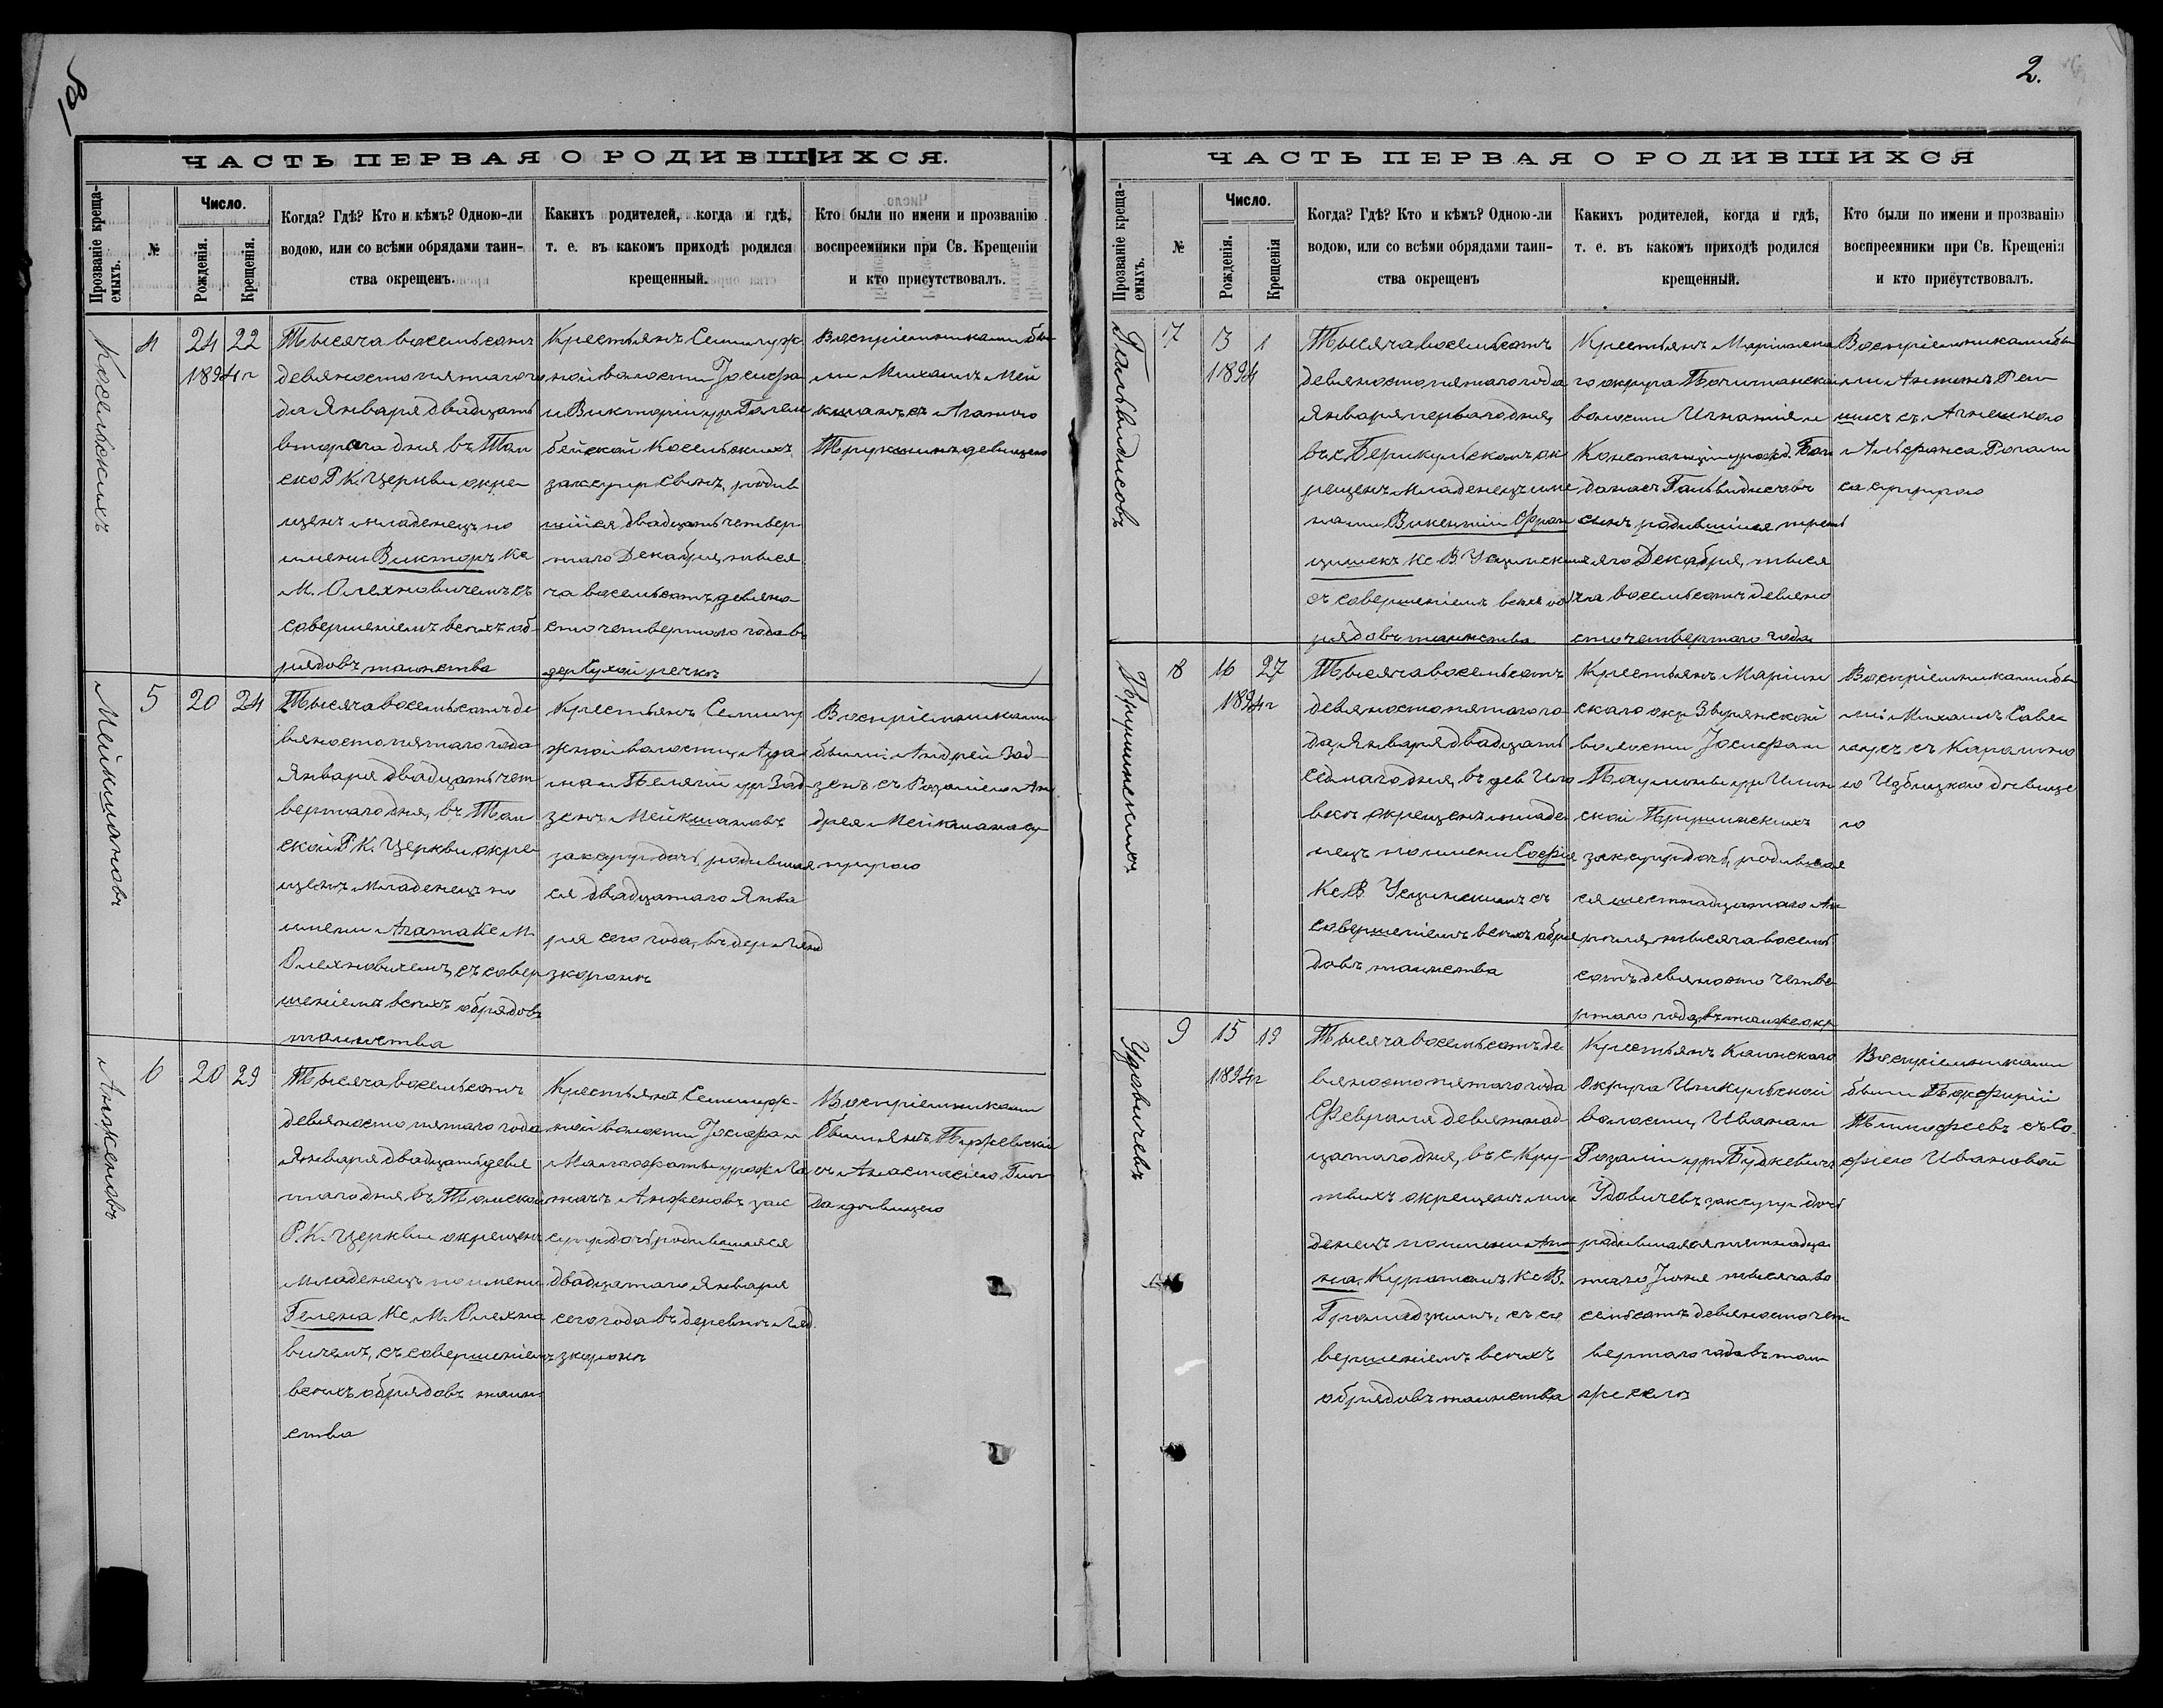 2.
ЧАСТЬ ПЕРВАЯ О РОДИВШИХСЯ.
Прозваніе крещаемыхъ.
№
Число.
Рожденія.
Крещенія.
Когда? Гдѣ? Кто и кѣмъ? Одною-ли
водою, или со всѣми обрядами таин-
ства окрещенъ.
Какихъ родителей, когда и гдѣ,
т. е. въ какомъ приходѣ родился
крещенный.
Кто были по имени и прозванію
воспреемники при Св. Крещеніи
и кто присутствовалъ.
Косельскихъ
4
24 22
1894 г
Тысяча восемьсотъ
девяносто пятаго го
да Января двадцать
второго дня въ Том
ско Р. К. Церкви окре
щенъ младенецъ по
имени Викторъ Кс
М. Олехновичемъ съ
совершеніемъ всѣхъ об-
рядовъ таинства
Крестьянъ Семилуж
ной волости Іосифа
и Викторіи ур Голем
бейской Косельскихъ
зак супр сынъ, родив
шійся двадцать четвер
таго Декабря, тыся
ча восемьсотъ девяно-
сто четвертого года въ
дер Сухой речкѣ
Воспріемниками бы
ли Михаилъ Мей
кшанъ съ Агатою
девицею
Мейкшановъ
5
20 24
Тысяча восемьсотъ де
вяносто пятаго года
Января двадцать чет
вертаго дня, въ Том
ской Р. К. Церкви окре
щенъ младенецъ по
имени Агата Кс М.
Олехновичемъ, съ совер
шеніемъ всѣхъ обрядовъ
таинства
Крестьянъ Семилу
жной волости, Ада
ма и Пелагіи ур Зад
зенъ Мейкшановъ
зак супр дочь, родившая
ся двадцатаго Янва
ря сего года, въ дер
Воспріемниками
были Андрей Зад-
зенъ съ Розаліею Ан
дрея Мейкшана су
пругою
Анженовъ
6
20 29
Тысяча восемьсотъ
девяносто пятаго года
Января двадцать девя
таго дня въ Томской
Р. К. Церкви окрещенъ
младенецъ по имени
Гелена Кс М. Олехно
вичемъ, съ совершеніемъ
всѣхъ обрядовъ таин
ства
Крестьянъ Семилуж-
ной волости Іосифа и
Малгожаты урож
Анженовъ зак
супр дочь родившаяся
двадцатаго Января
сего года въ деревнѣ
Воспріемниками
были Янъ
съ Анастасіею
девицею
ЧАСТЬ ПЕРВАЯ О РОДИВШИХСЯ
Прозваніе крещаемыхъ.
№
Число.
Рожденія.
Крещенія
Когда? Гдѣ? Кто и кѣмъ? Одною-ли
водою, или со всѣми обрядами таин-
ства окрещенъ
Какихъ родителей, когда и гдѣ,
т. е. въ какомъ приходѣ родился
крещенный.
Кто были по имени и прозванію
воспреемники при Св. Крещенія
и кто присутствовалъ.
Гальвидисовъ
7
3 1
1894
Тысяча восемьсотъ
девяносто пятаго года
Января перваго дня,
въ с Берикульскомъ ок
рещенъ младенецъ име
нами Викентій Фран
цишекъ Кс В. Усцинскимъ
съ совершеніемъ всѣхъ об
рядовъ таинства
Крестьянъ Маріинска
го округа Почитанской
волости Игнатія и
Констанціи урожд. Бог
данасъ Гальвидисовъ
сынъ родившійся треть
яго Декабря, тыся
ча восемьсотъ девяно
сто четвертаго года
Воспріемниками бы
ли Антонъ
съ Агнешкою
Альфонса
са супругою
8
16 27
1894 г
Тысяча восемьсотъ
девяносто пятаго го-
да, Января двадцать
седмаго дня, въ дев
окрещенъ младе
нецъ по имени Софія
Кс В. Усцинскимъ съ
совершеніемъ всѣхъ обря
довъ таинства
Крестьянъ Маріин
скаго окр Зырянской
волости Іосифа и
Паулины ур
зак супр дочь, родившая
ся шестнадцатаго Ап
реля, тысяча восемь
сотъ девяносто четве
ртаго года, въ томже окр
Воспріемниками бы
ли Михаилъ
съ Каролино
ю девице
ю
Удовичевъ
9
15 19
1894 г
Тысяча восемьсотъ де
вяносто пятаго года
Февраля девятнад-
цатаго дня, въ с Кру-
тыхъ окрещенъ мла
денецъ по имени Ан
на. Куратомъ Кс В.
Громадзкимъ, съ со
вершеніемъ всѣхъ
обрядовъ таинства
Крестьянъ Каинскаго
Округа Ичкульской
волости, Ивана и
Розаліи ур Будкевичъ
Удовичевъ зак супр дочь
родившаяся пятнадца
таго Іюня тысяча во
семьсотъ девяносто чет
вертаго года въ том
же селѣ
Воспріемниками
были Порфирій
Тимофеевъ съ Со
фіею Ивановой